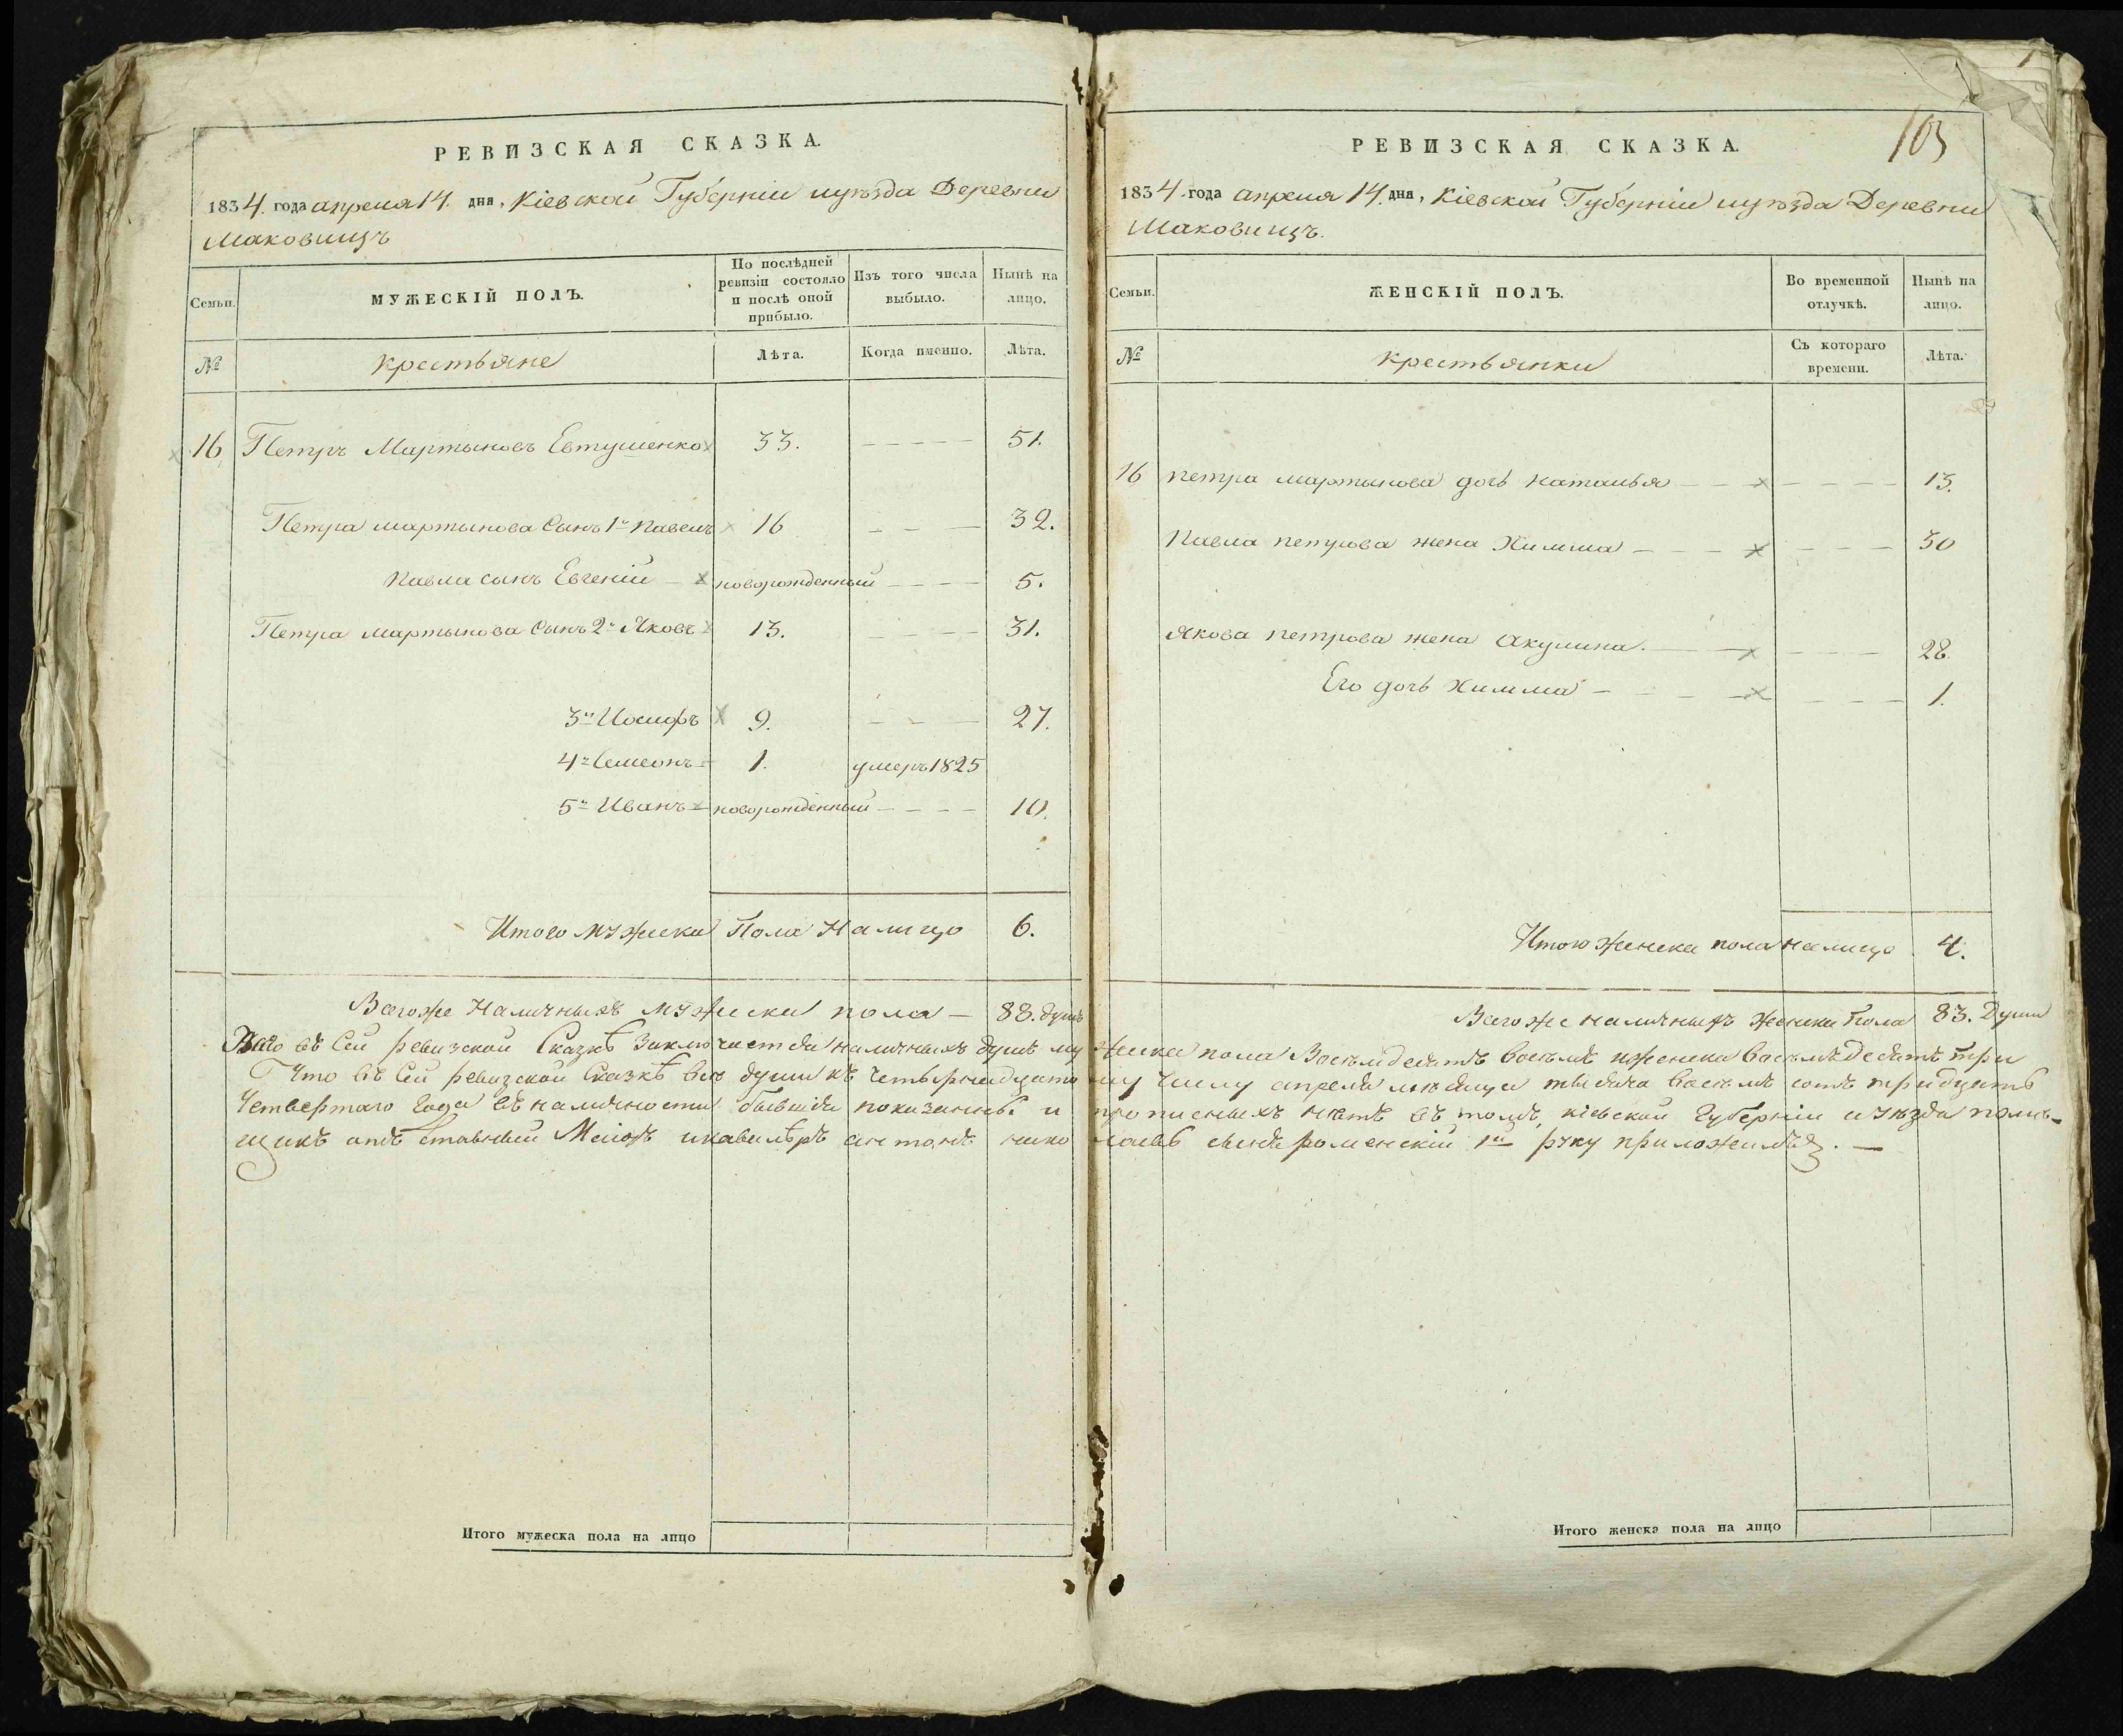 РЕВИЗСКАЯ СКАЗКА.
1834. года апреля 14. дня, Кіевской Губерніи иуѣзда Деревни
Маковищъ
Семьи.
МУЖЕСКІЙ ПОЛЪ.
По послѣдней ревизіи состояло и послѣ оной прибыло.
Изъ того числа выбыло.
Нынѣ на лицо.
№
крестьяне
Лѣта.
Когда именно.
Лѣта.
16 Петръ Мартыновъ Евтушенко 33. 51.
Петра мартынова Сынъ 1й Павелъ 16 32.
Павла сынъ Евгеній новорожденный 5.
Петра мартынова Сынъ 2й Яковъ 13. 31.
3й Иосифъ 9. 27.
4й Семеонъ 1. умеръ 1825
5й Иванъ новорожденный 10.
Итого мужеска Пола На лицо 6.
Всего же Наличныхъ мужеска пола — 88. душъ
РЕВИЗСКАЯ СКАЗКА.
103
1834. года апреля 14. дня, Кіевской Губерніи иуѣзда Деревни
Маковищъ.
Семьи.
ЖЕНСКІЙ ПОЛЪ.
Во временной отлучкѣ.
Нынѣ на лицо.
№
крестьянки
Съ котораго времени.
Лѣта.
16 петра мартынова дочь наталья 13.
Павла петрова жена Химма 30
Якова петрова жена Акулина. 28.
Его дочь Химма 1.
Итого женска пола налицо 4.
Всего же наличныхъ женска Пола 83. Души
Всего въ Сей ревизской Сказкѣ заключается наличныхъ душъ мужеска пола Восемдесятъ восемъ иженска восемъдесятъ три
Что въ Сей ревизской Сказкѣ все души къ четырнадцатому числу апреля мѣсяца тысяча восемъ сотъ тридцать
Четвертаго Года въ наличности бывшія показанны и прописныхъ нѣтъ въ томъ, кіевской Губерніи иуѣзда помѣ-
щикъ отъ Ставный Маіоръ икавалѣръ антонъ николаевъ сынъ роменскій 1й руку приложилъ. —
Итого мужеска пола на лицо
Итого женска пола на лицо